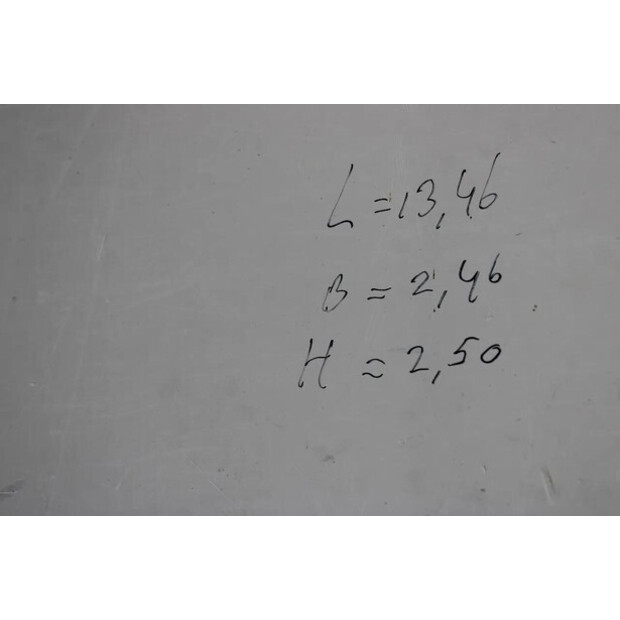 L = 13,46
B = 2,46
H ≈ 2,50